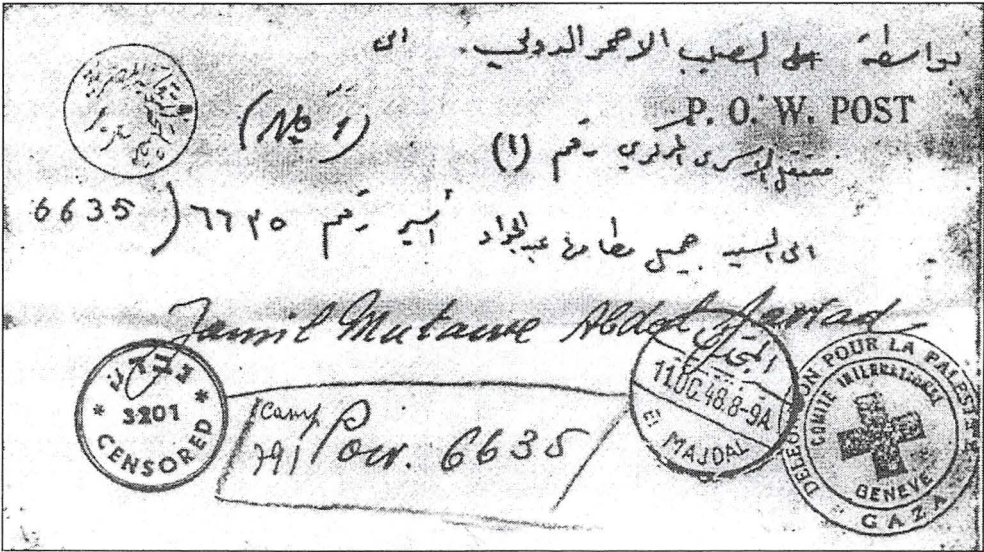 بواسطة الصليب الاحمر الدولي الى
P. O. W. POST
(No 1)
معتقل الاسرى المركزي رقم (١)
الى السيد جميل مطاوع عبد الجواد أسير رقم ٦٦٣٥ (6635
Jamil Mutawe Abdel Jawad
נבדק
3201
CENSORED
Camp 791 Pow. 6635
المجدل
11 OC 48.8-9A
El MAJDAL
DELEGATION POUR LA PALESTINE
COMITE INTERNATIONAL
GENEVE
GAZA